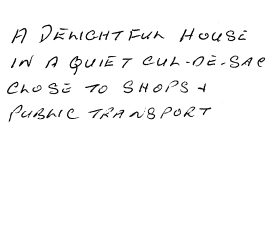 A DELIGHTFUL HOUSE
IN A QUIET CUL-DE-SAC
CLOSE TO SHOPS +
PUBLIC TRANSPORT